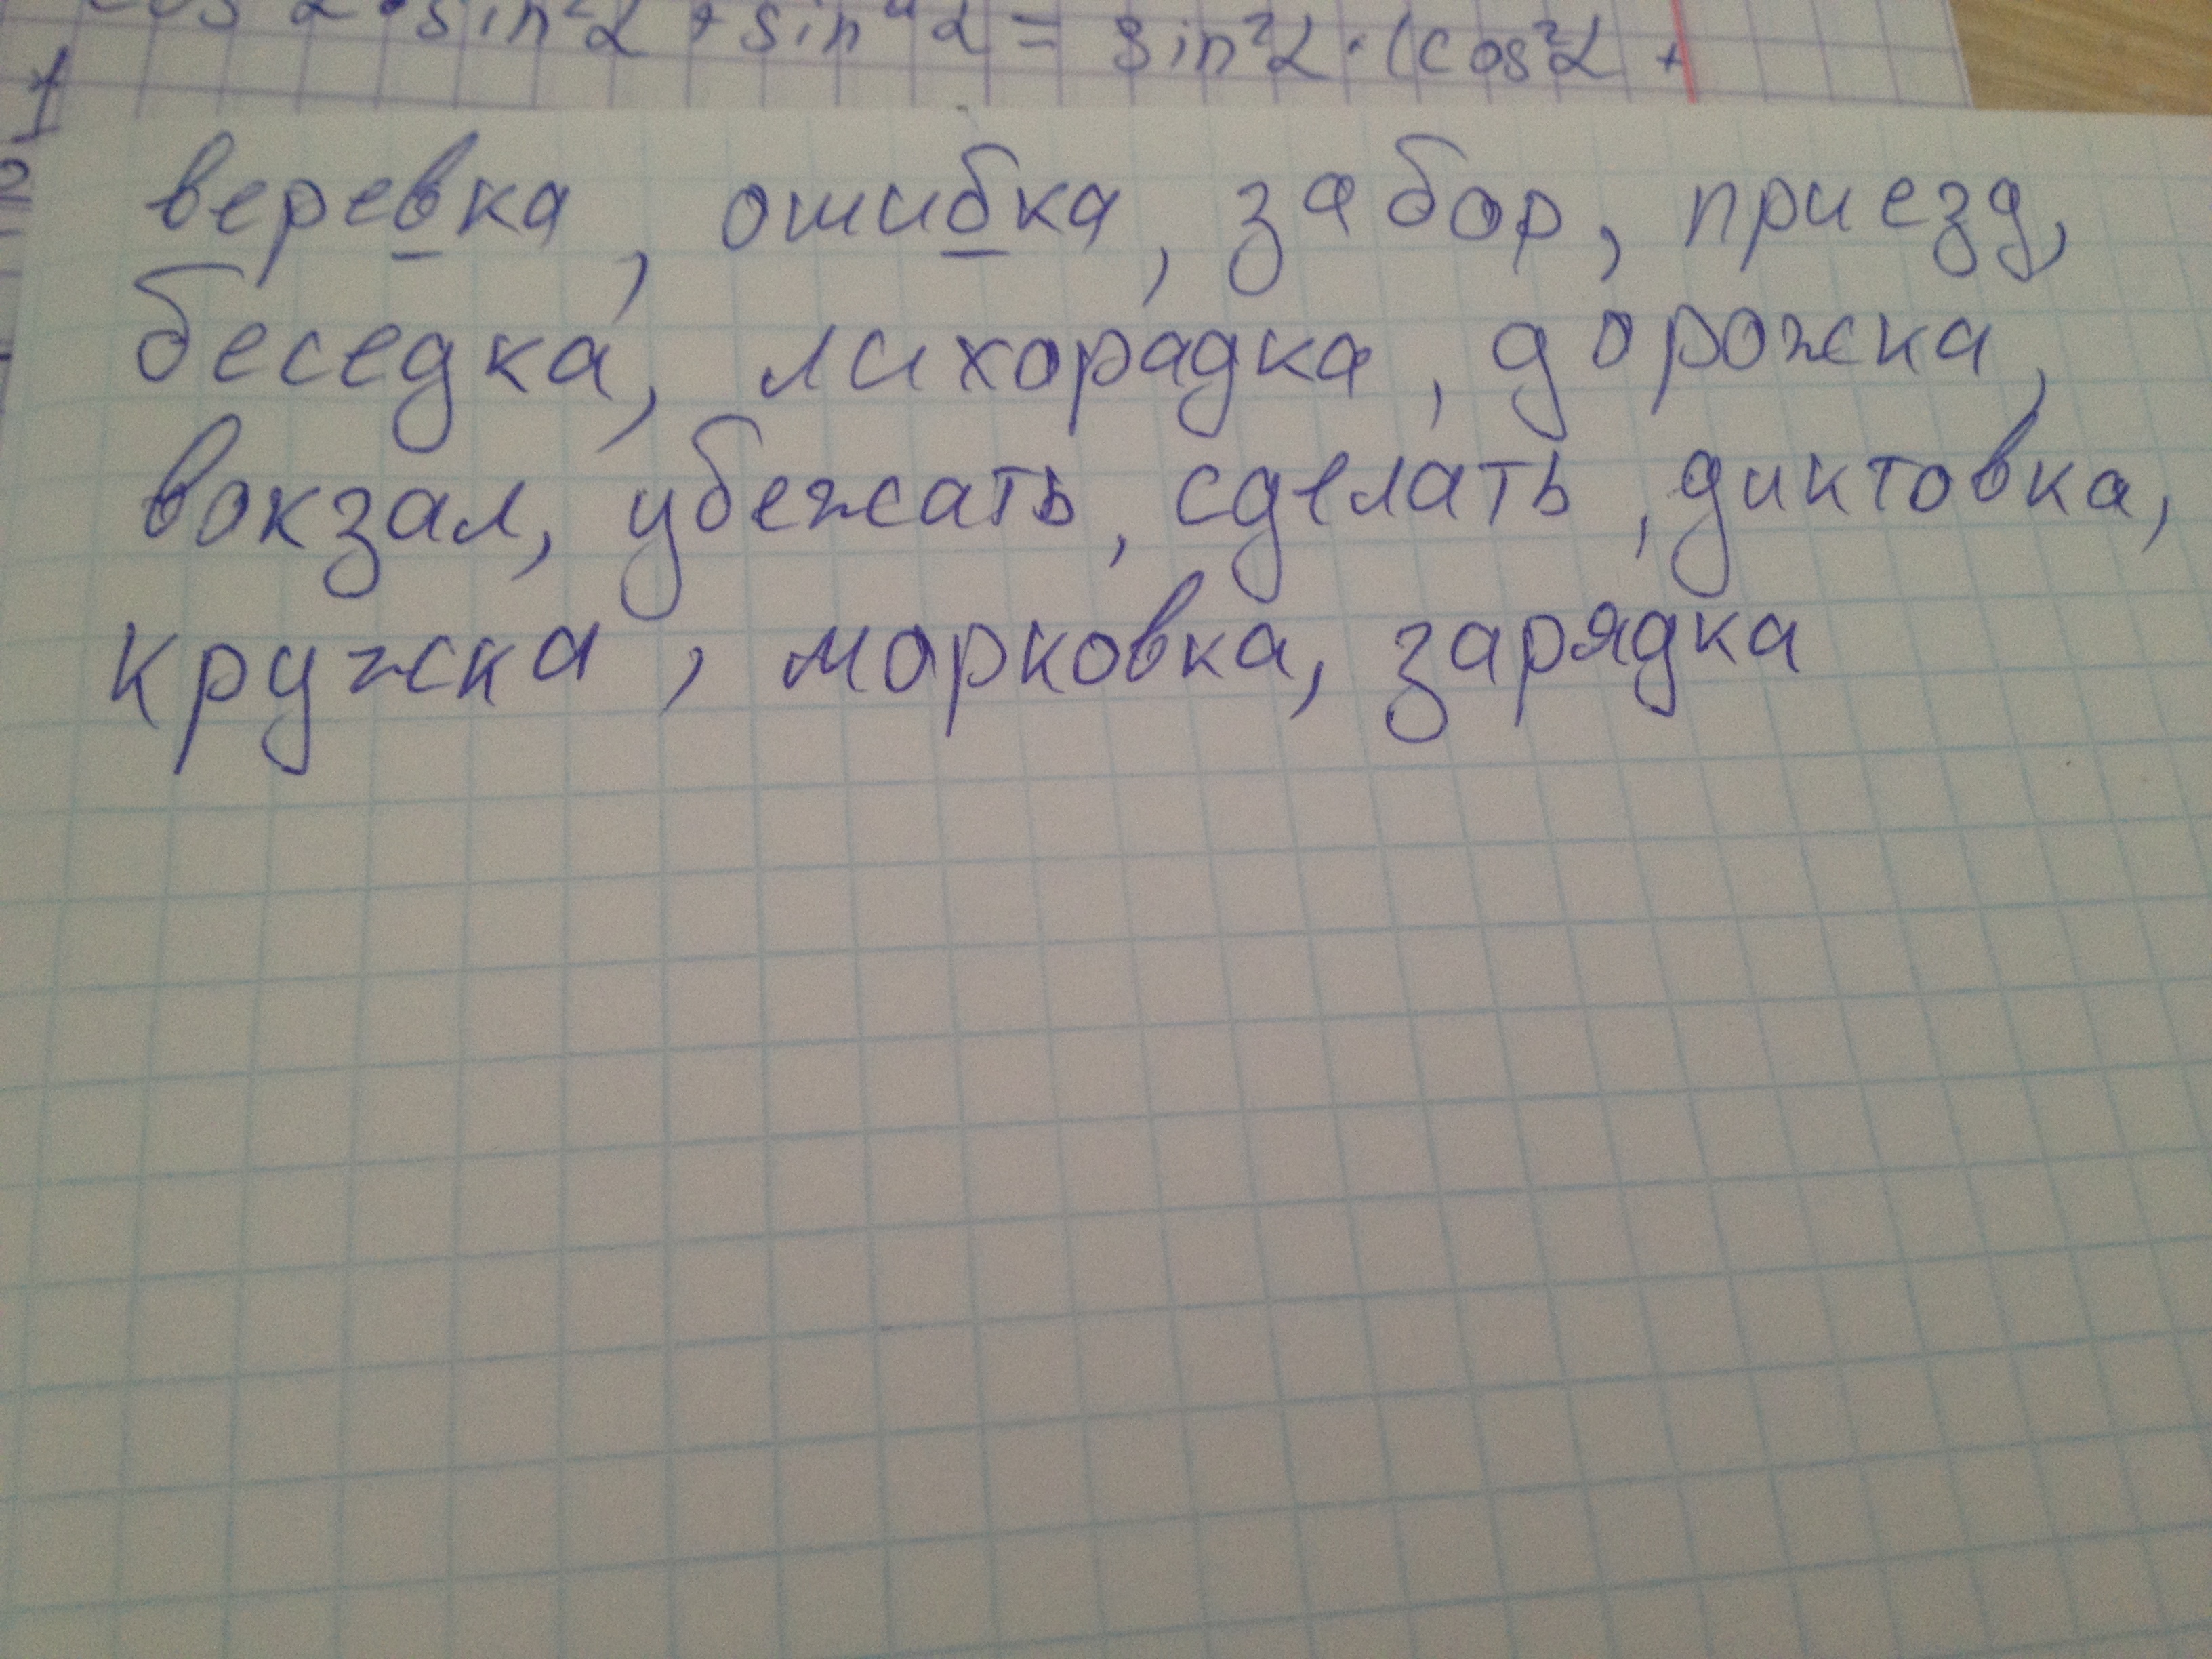 cos²α · sin²α + sin⁴α = sin²α · (cos²α +
веревка, ошибка, забор, приезд,
беседка, лихорадка, дорожка,
вокзал, убежать, сделать, диктовка,
кружка, морковка, зарядка